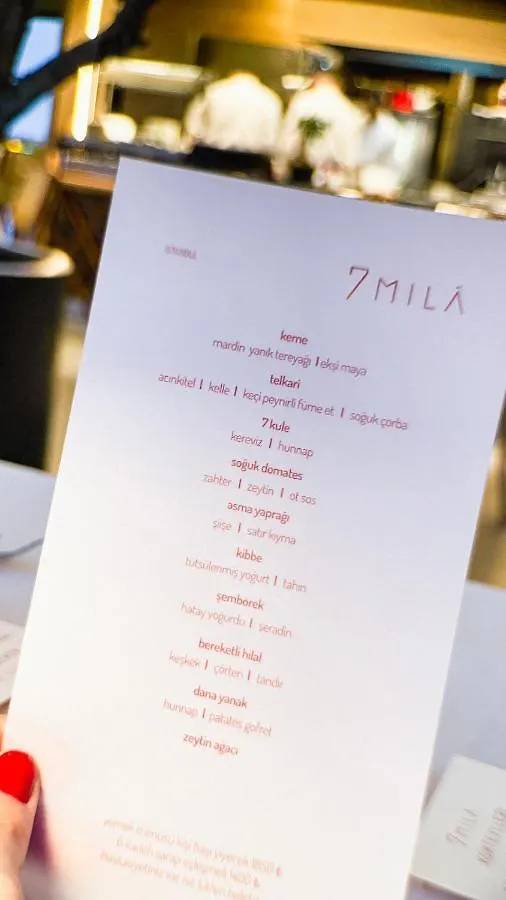 7MILÁ
keme
mardin yanık tereyağı | ekşi maya
telkari
acınkitel | kelle | keçi peynirli füme et | soğuk çorba
7 kule
kereviz | hunnap
soğuk domates
zahter | zeytin | ot sos
asma yaprağı
şişe | satır kıyma
kibbe
tütsülenmiş yoğurt | tahin
şemborek
hatay yoğurdu | şeradin
bereketli hilal
keşkek | çörten | tandır
dana yanak
hunnap | patates gofret
zeytin ağacı
7MILÁ